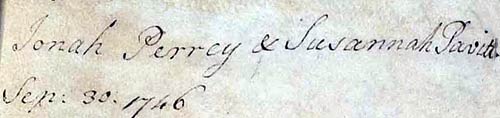 Jonah Perrey & Susannah Pavitt
Sep: 30: 1746